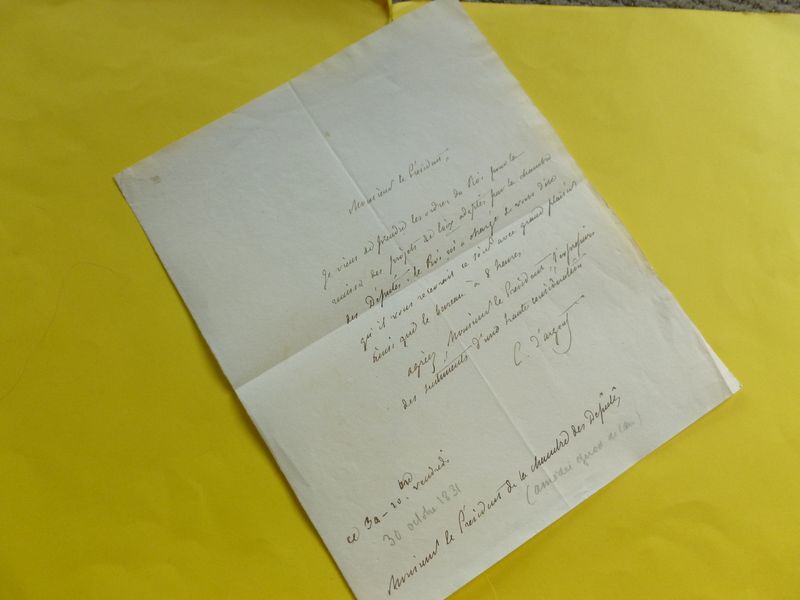 Monsieur le Président,
Je viens de prendre les ordres du Roi pour la
remise des projets de loix adoptés par la chambre
des Députés. le Roi m'a chargé de vous dire
qu'il vous recevrait ce soir avec grand plaisir
ainsi que le bureau à 8 heures.
agréez, Monsieur le Président, l'expression
des sentiments d'une haute considération
C. d'argout
ce 30 - 8bre vendredi
30 octobre 1831
Monsieur le Président de la chambre des Députés